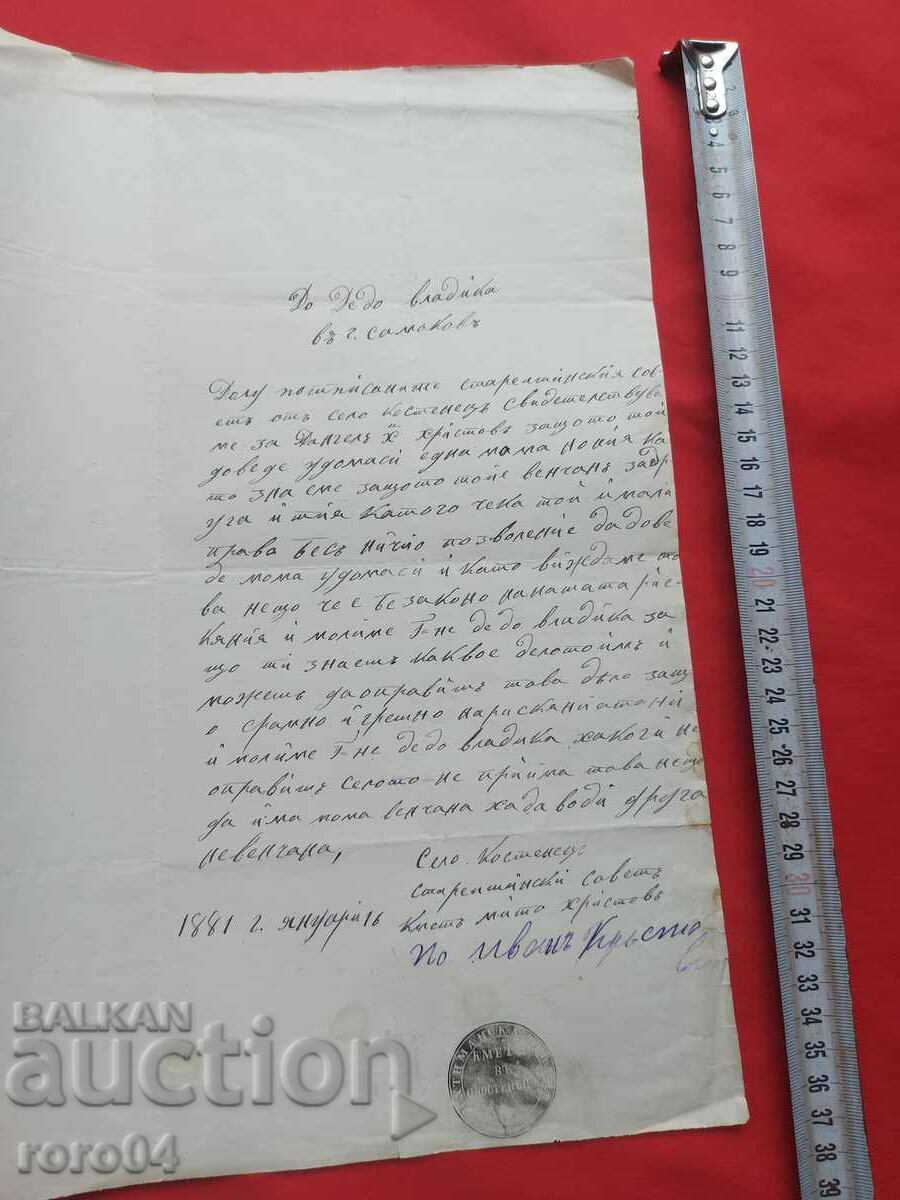 До Дедо владика
въ г. самоковъ
Долу потписаните старештинския сов-
етъ отъ село Костенецъ свидетелствува
ме за Дангелъ Х христовъ защото той
доведе удомаси една мома но ния ка
то зна сме защото тойе венчанъ за др
уга и тия катого чека той имали
права бесъ ничию позволение да дове
де мома удомаси и като виждаме то
ва нещо че е безаконо на ната рис-
кяния и молиме Г-не дедо владика за
що ти знаешъ каквое делото имъ и
можешъ да оправишъ това дѣло защ
о срамно и грешно на рискянатани
и молиме Г-не дедо владика хако ги не
оправишъ селото не прийма това нещо
да има мома венчана ха да води друга
невенчана,
Село. Костенецъ
старештински советъ
1881 г. януарий 16 Кметъ мито христовъ
по Иванъ Кръстов
КМЕТ
ВЪ
BALKAN
auction
roro04
2 3 4 5 6 7 8 9 11 12 13 14 15 16 17 18 19 20 21 22 23 24 25 26 27 28 29 30 31 32 33 34 35 36 37 38 39